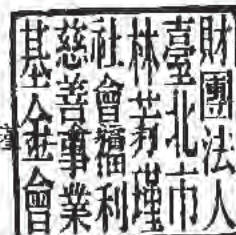 財團法人
臺北市
林若瑾
社會福利
慈善事業
基金會